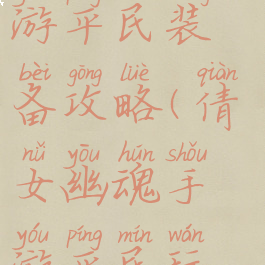 游平民装
bèi gōng lüè qiàn
备攻略(倩
nǚ yōu hún shǒu
女幽魂手
yóu píng mín wán
游平民玩